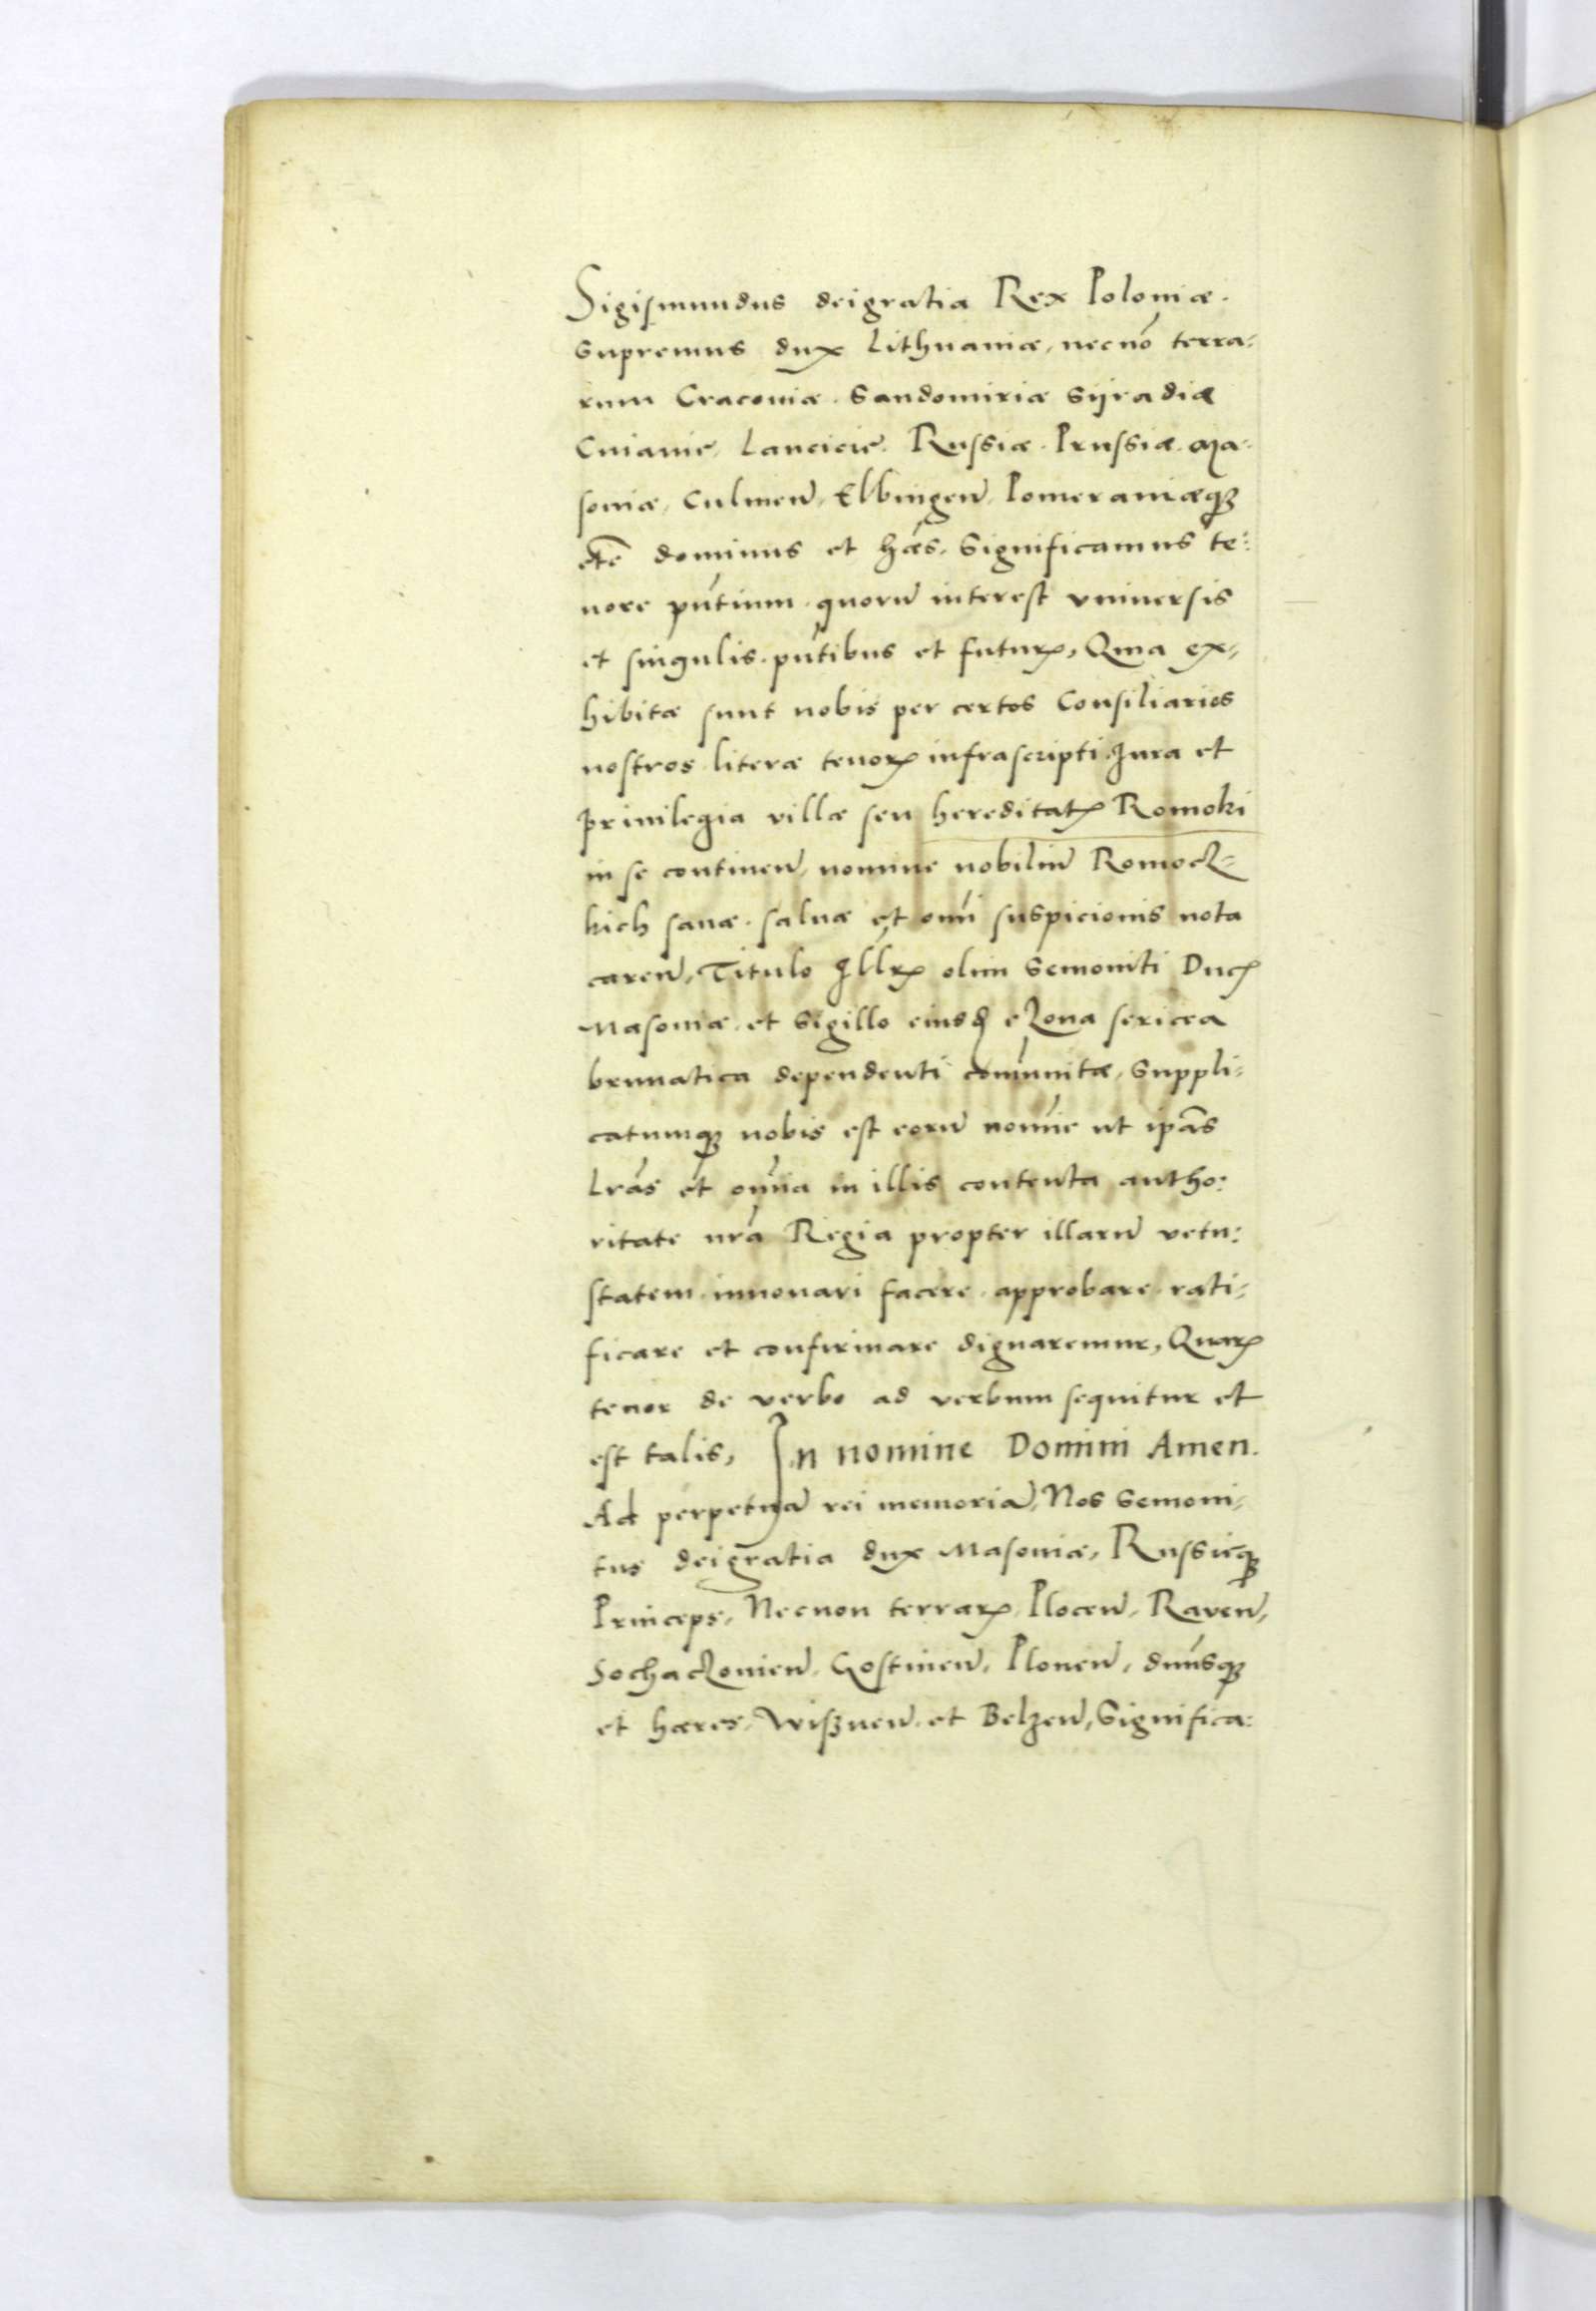 Sigismundus deigratia Rex Poloniæ.
Supremus dux Lithuaniæ, necnō terra:
rum Cracoviæ. Sandomiriæ Syradiæ
Cuiavię, Lancicię. Russiæ. Prussiæ. Ma-
soviæ, Culmen̄, Elbingen̄, Pomeraniæqꝫ
etc̄ dominus et hæs. Significamus te:
nore pn̄tium. quorū interest vniversis
et singulis. pn̄tibus et futurꝭ, Quia ex,
hibitæ sunt nobis per certos Consiliarios
nostros literæ tenorꝭ infrascripti. Jura et
privilegia villæ seu hereditatꝭ Romoki
in se continen̄, nomine nobiliū Romock-
kich sanæ. salvæ et omī suspicionis nota
caren̄, Titulo Illrꝭ olim Semoviti Ducꝭ
Masoviæ. et Sigillo eiusdꝭ e zona sericea
brunatica dependenti com̄unitæ, Suppli:
catumqꝫ nobis est eorū nomīe ut ipās
lrās et om̄ia in illis contenta autho:
ritate nrā Regia propter illarū vetu:
statem. innovari facere. approbare. rati:
ficare et confirmare dignaremur, Quarꝭ
tenor de verbo ad verbum sequitur et
est talis, In nomine Domini Amen.
Ad perpetuā rei memoriā, Nos Semovi:
tus deigratia dux Masoviæ, Russięqꝫ
Princeps, Necnon terrarꝭ, Plocen̄, Raven̄,
Sochaczovien̄, Gostinen̄, Plonen̄, dn̄usqꝫ
et hæres, Wißnen̄. et Belzen̄, Significa: